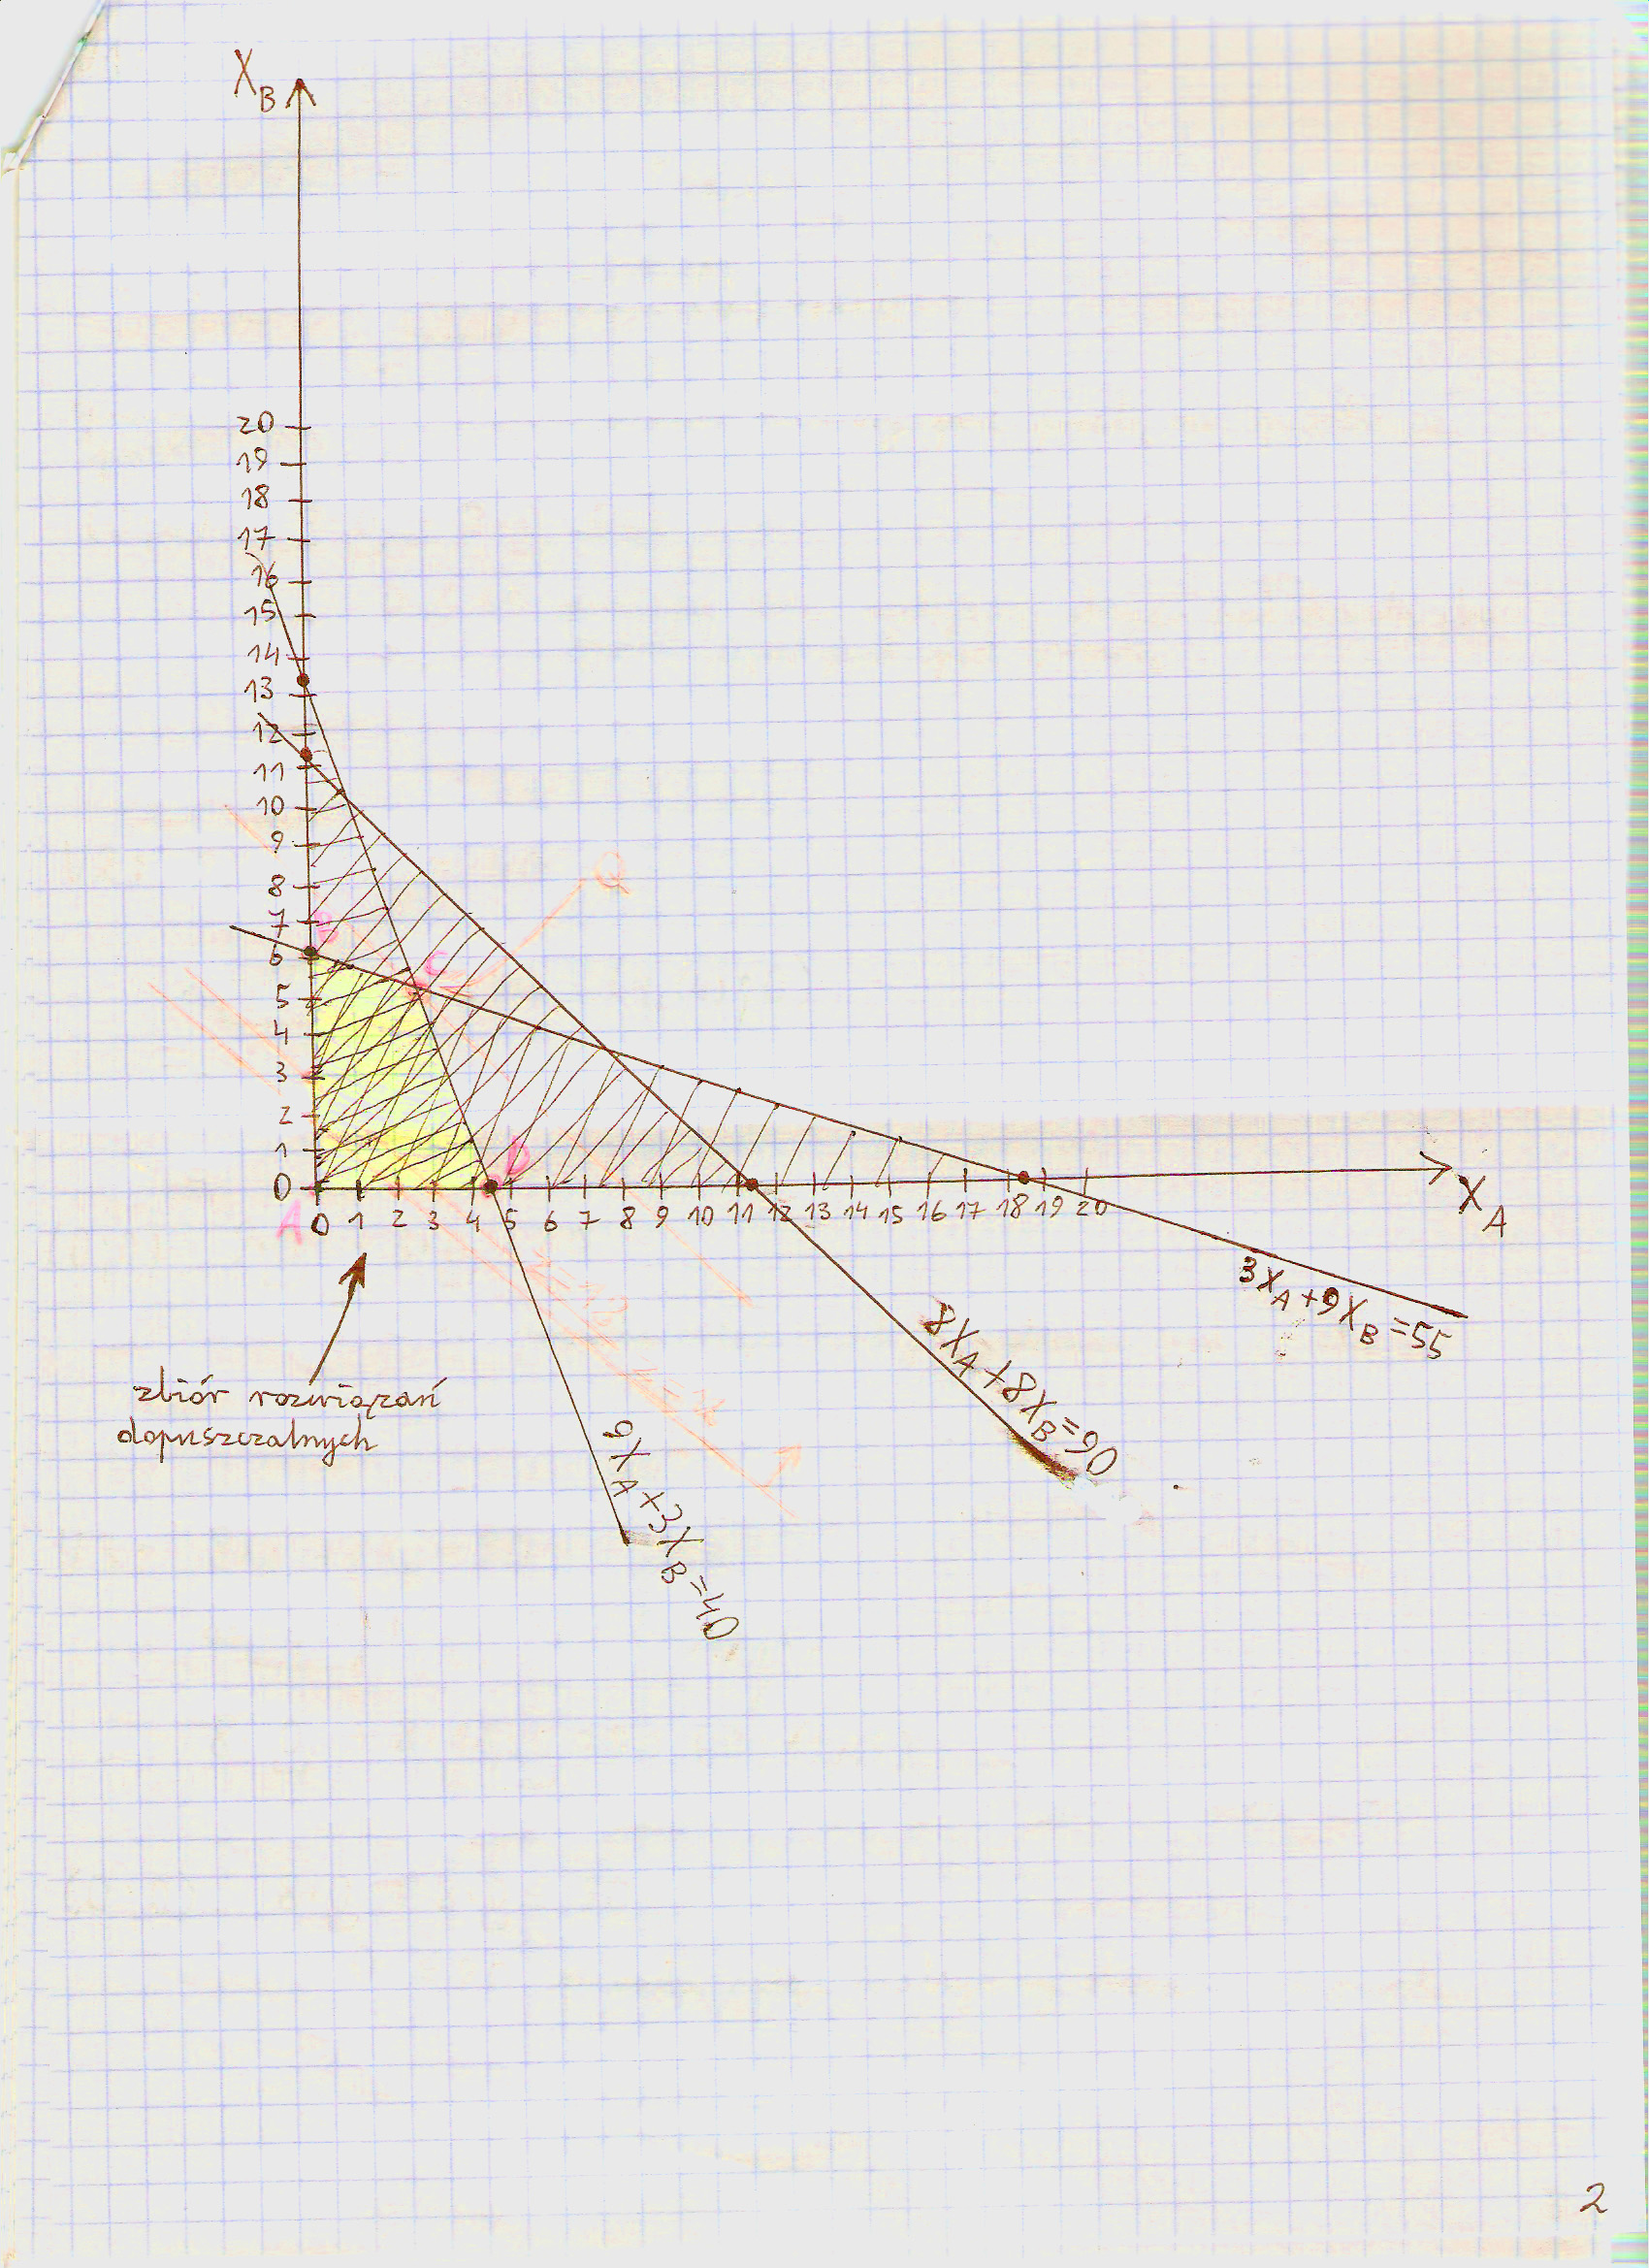 X_B
20
19
18
17
16
15
14
13
12
11
10
9
8
7
6
5
4
3
2
1
0
B
C
Q
D
A
0 1 2 3 4 5 6 7 8 9 10 11 12 13 14 15 16 17 18 19 20
X_A
3X_A+9X_B=55
8X_A+8X_B=90
9X_A+3X_B=40
zbiór rozwiązań
dopuszczalnych
2